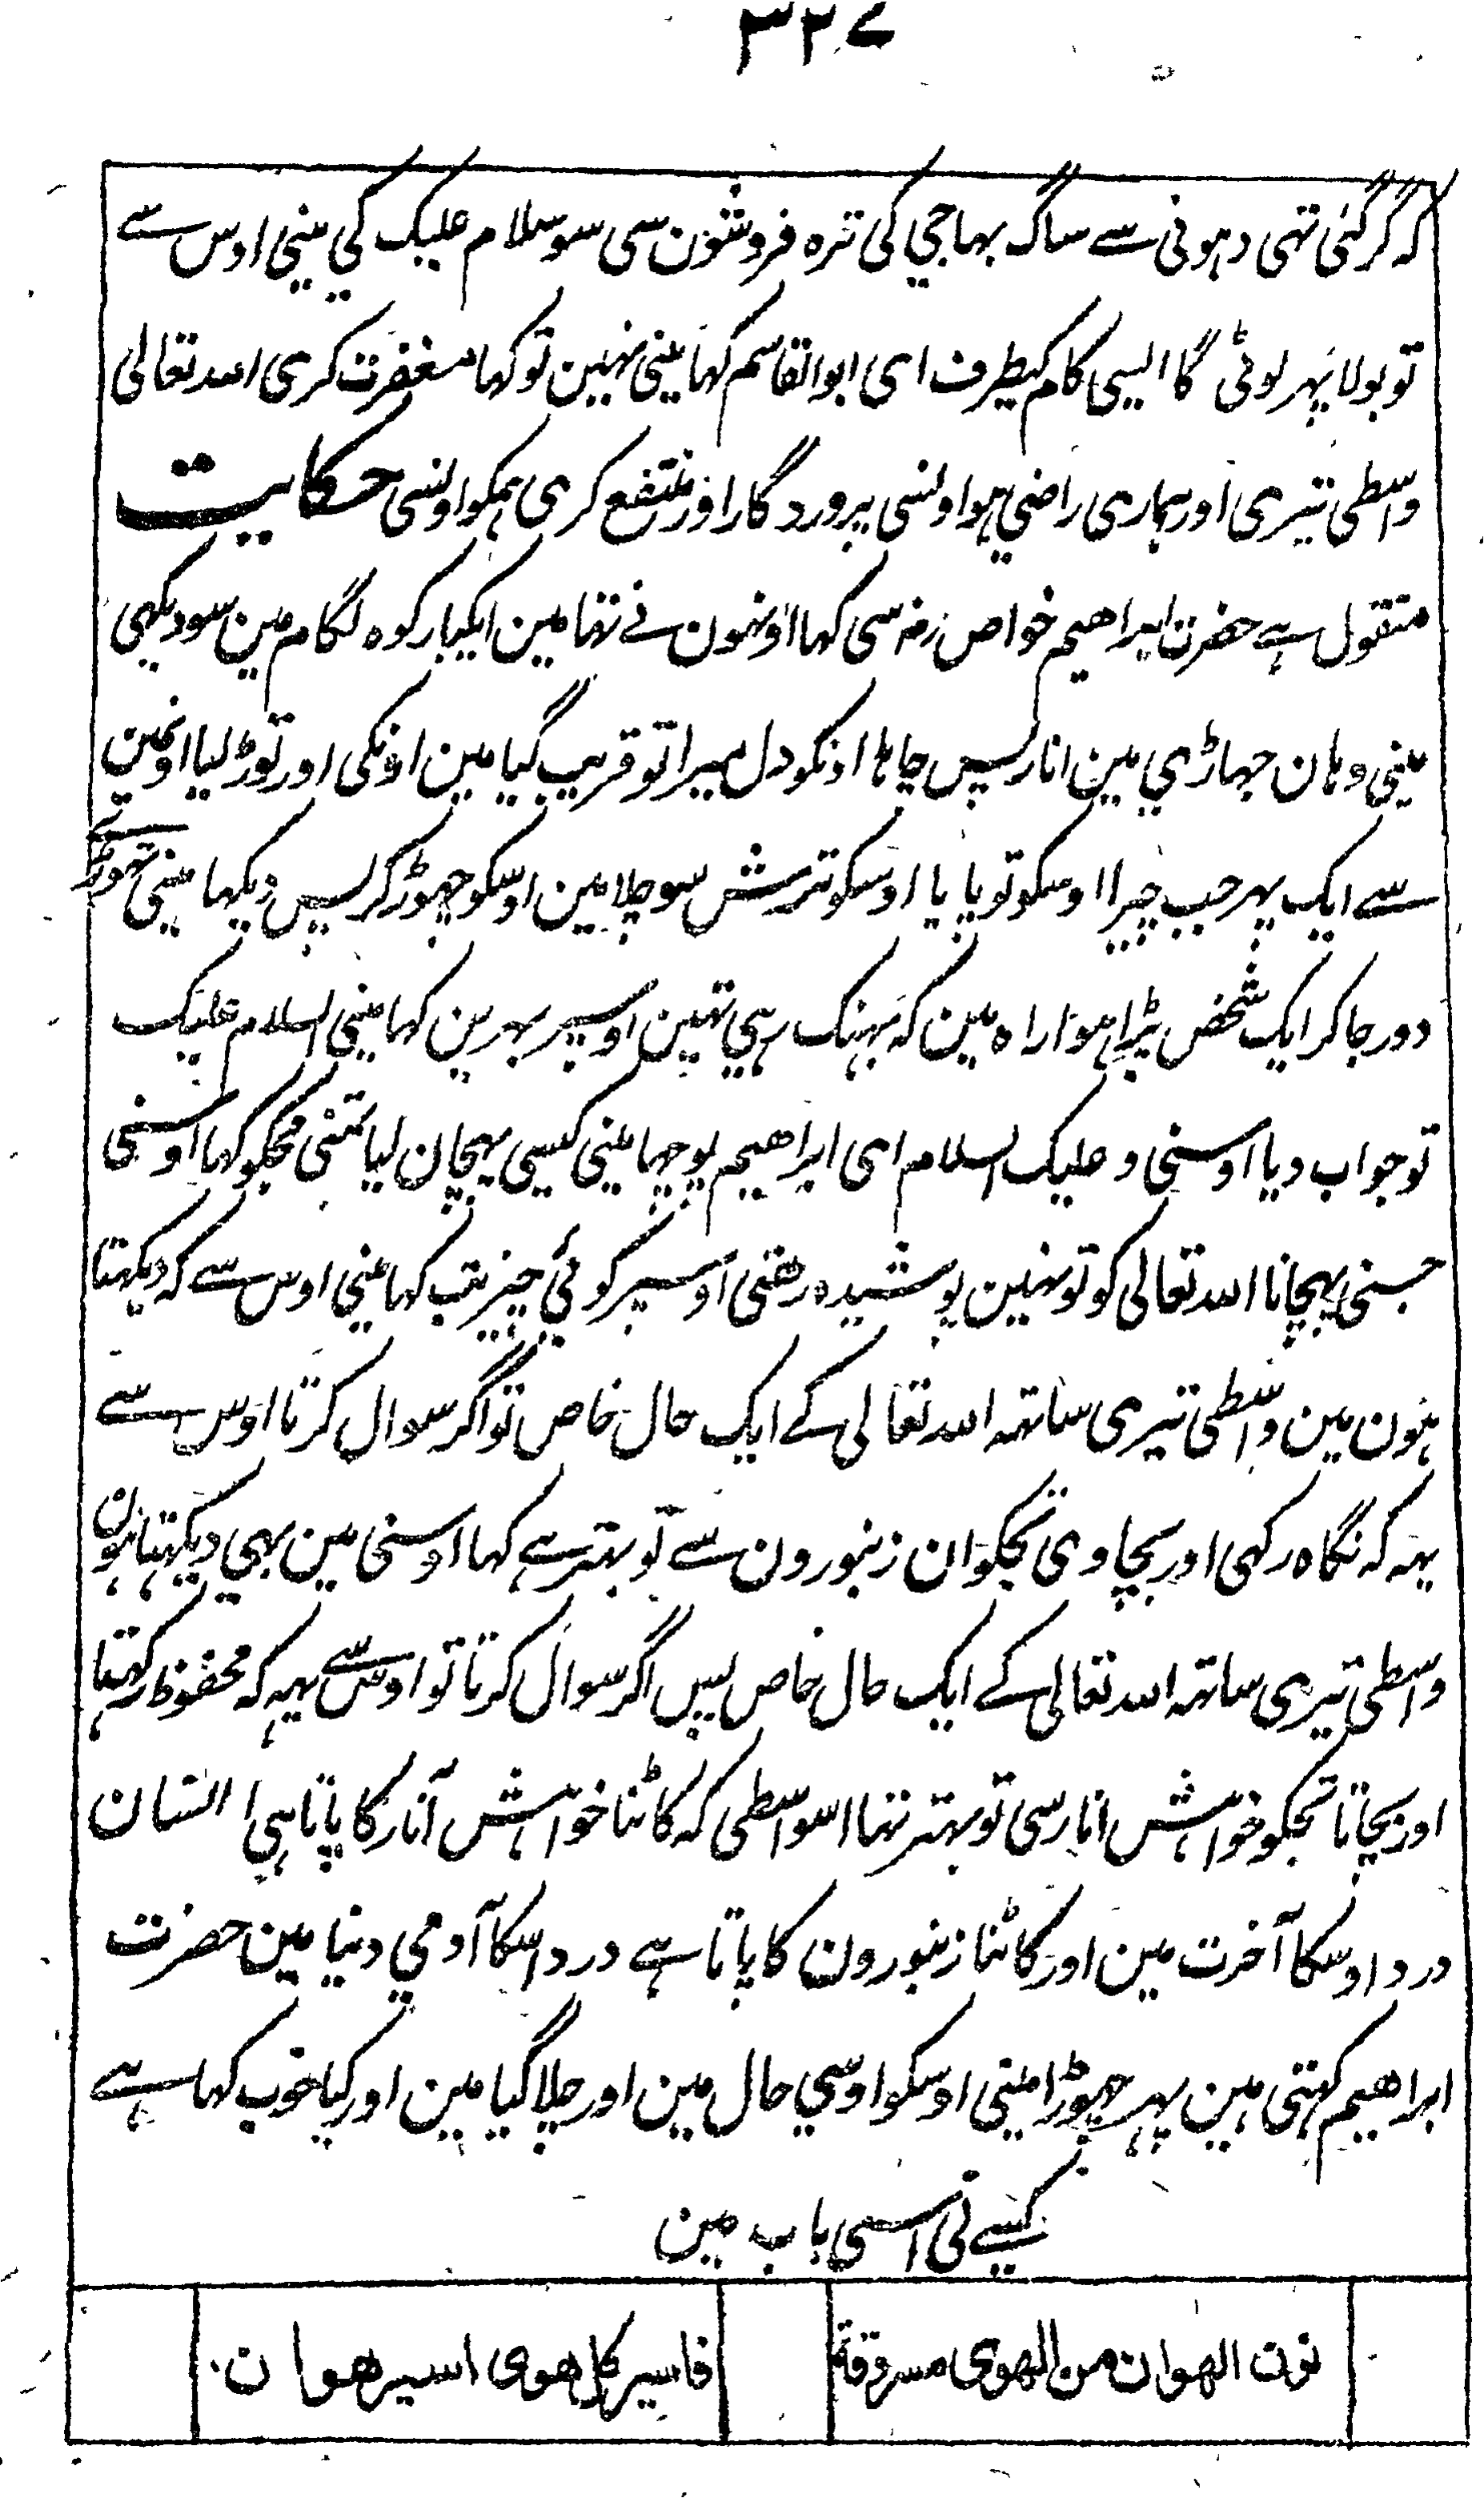 ۳۲۷
که گرگئی تهی دهونی سے ساگ بهاجي کی تره فروشون سی سو سلام علیک کي مینی اوس سے
تو بولا پهر لوٹی گا ایسی کام کیطرف ای ابوالقاسم کها مینی نهین تو کها مغفرت کری الله تعالی
واسطی تیری اور هماری راضي هو اوسی پروردگار اور منتفع کری همکو اوسی حکایت
منقول هے حضرت ابراهیم خواص رضہ سی کها اونهون نے تها مین ایکبار کوه لگام مین سو دیکهی
مینی وهان جهاڑي مین انار پس چاها اونکو دل میرا تو قریب گیا مین اونکی اور توڑ لیا اونمین
سے ایک پهر جب چیرا اوسکو تو پایا اوسکو ترش سو چلا مین اوسکو چهوڑ کر پس دیکها مینی تهوڑے
دور جا کر ایک شخص پڑا هوا راه مین که بهنک رهي تهین اوسپر بهرین کها مینی السلام علیک
تو جواب دیا اوسنی وعلیک السلام ای ابراهیم پوچها مینی کیسی پهچان لیا تمنی مجکو کها اوسنی
جسنی پهچانا الله تعالی کو تو نهین پوشیده رهتی اوسپر کوئي چیز تب کها مینی اوس سے که دیکهتا
هون مین واسطی تیری ساتهه الله تعالی کے ایک حال خاص تو اگر سوال کرتا اوس سے
یهه که نگاه رکهی اور بچاوی تجکو ان زنبورون سے تو بهتر هے کها اوسنی مین بهي دیکهتا هون
واسطی تیری ساتهه الله تعالی کے ایک حال خاص پس اگر سوال کرتا تو اوس سے یهه که محفوظ رکهتا
اور بچاتا تجکو خواهش انار سی تو بهتر تها اسواسطی که کاٹنا خواهش انار کا پاتا هی انسان
درد اوسکا آخرت مین اور کاٹنا زنبورون کا پاتا هے درد اسکا آدمي دنیا مین حضرت
ابراهیم کهتی هین پهر چهوڑا مینی اوسکو اوسي حال مین اور چلا گیا مین اور کیا خوب کها هے
کسے نی اسی باب مین
نون الهوان من الهوی مسروقة
فاسیر کل هوی اسیر هوان